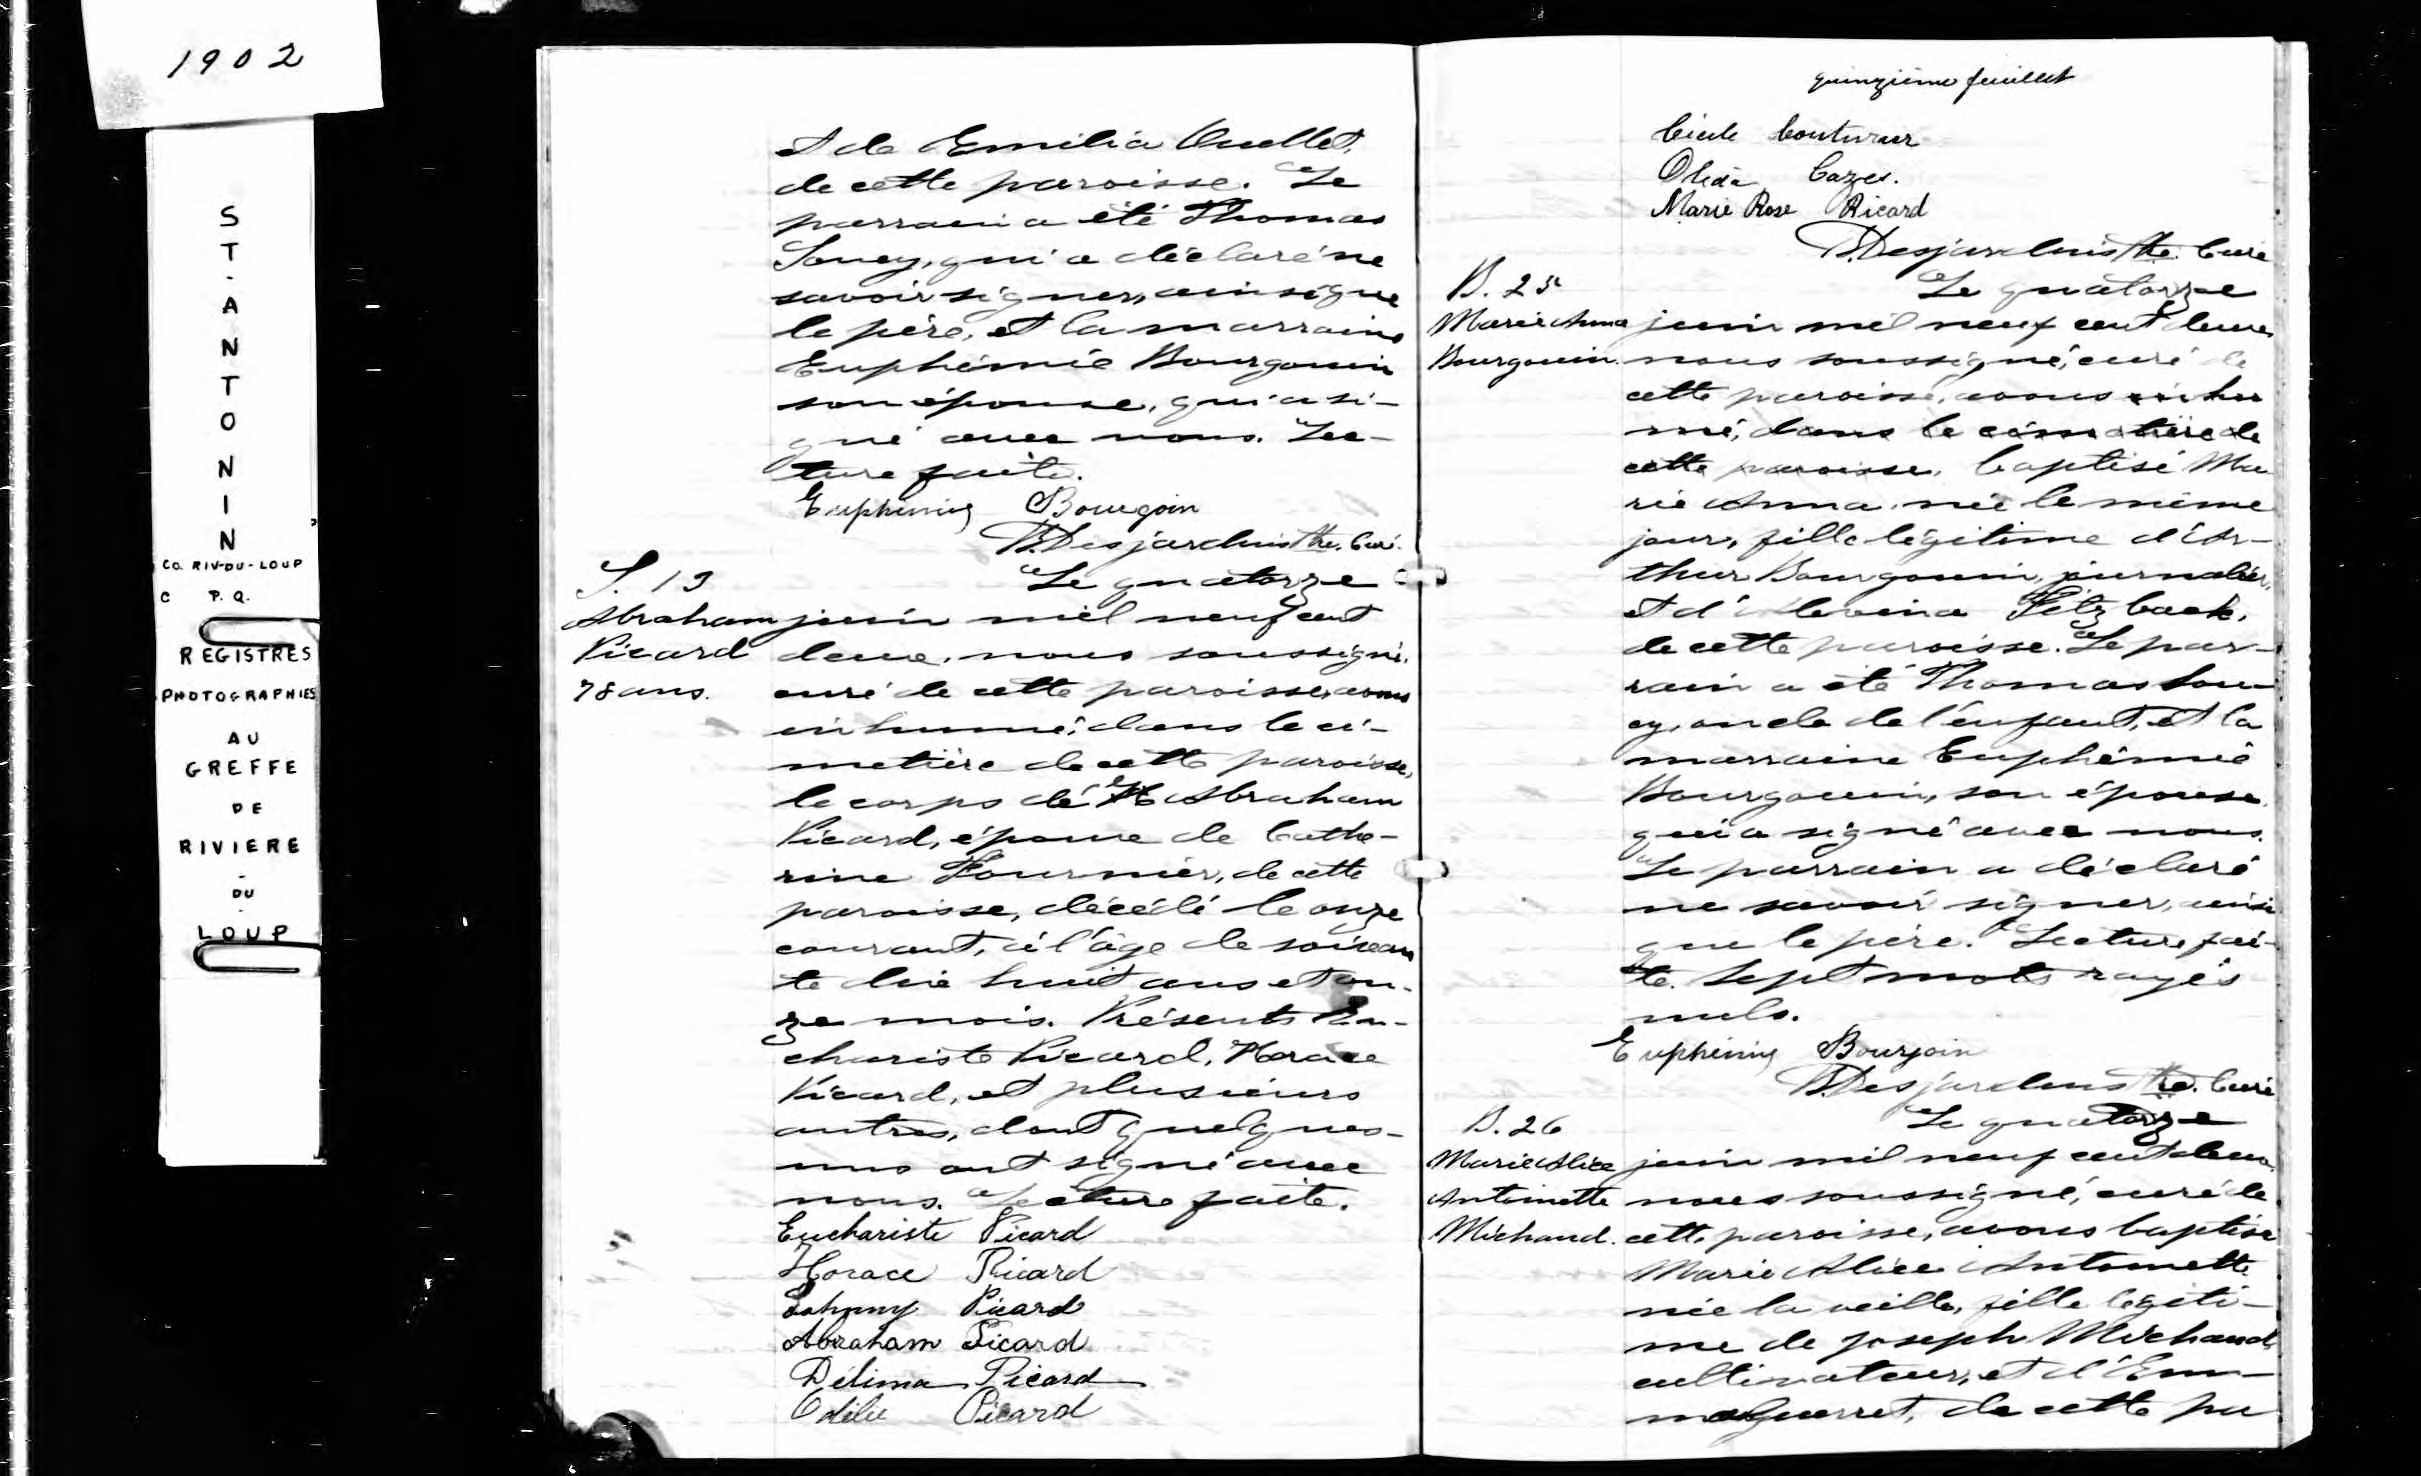 1902
ST. ANTONIN
CO. RIV-DU-LOUP
C P.Q.
REGISTRES
PHOTOGRAPHIES
AU
GREFFE
DE
RIVIERE
-
DU
-
LOUP
et de Emilia Ouellet,
de cette paroisse. Le
parrain a été Thomas
Soucy, qui a déclaré ne
savoir signer, ainsi que
le père, et la marraine
Euphémie Bourgouin
son épouse, qui a si-
gné avec nous. Lec-
ture faite.
Euphémie Bourgoin
Desjardins Ptre. Curé.
S. 13
Abraham
Picard
78 ans.
Le quatorze
juin mil neuf cent
deux, nous soussigné,
curé de cette paroisse, avons
inhumé, dans le ci-
metière de cette paroisse,
le corps de Abraham
Picard, époux de Cathe-
rine Fournier, de cette
paroisse, décédé le onze
courant, à l'âge de soixan
te dix huit ans et on-
ze mois. Présents Eu-
chariste Picard, Horace
Picard, et plusieurs
autres, dont quelques-
uns ont signé avec
nous. Lecture faite.
Euchariste Picard
Horace Picard
Johnny Picard
Abraham Picard
Délima Picard
Odélie Picard
quinzième feuillet
Cécile Couturier
Olida Cazes.
Marie Rose Ricard
Desjardins Ptre. Curé
B. 25
Marie Anna
Bourgouin.
Le quatorze
juin mil neuf cent deux
nous soussigné, curé de
cette paroisse, avons inhu
mé, dans le cimetière de
cette paroisse, baptisé Ma
rie Anna, née le même
jour, fille légitime d'Ar-
thur Bourgouin, journalier,
et d'Alevina Fitzback,
de cette paroisse. Le par-
rain a été Thomas Sou-
cy, oncle de l'enfant, et la
marraine Euphémie
Bourgouin, son épouse,
qui a signé avec nous.
Le parrain a déclaré
ne savoir signer, ainsi
que le père. Lecture fai-
te. Sept mots rayés
nuls.
Euphémie Bourgoin
Desjardins Ptre. Curé
B. 26
Marie Alice
Antoinette
Michaud.
Le quatorze
juin mil neuf cent deux,
nous soussigné, curé de
cette paroisse, avons baptisé
Marie Alice Antoinette
née la veille, fille légiti-
me de Joseph Michaud,
cultivateur, et d'Em-
ma Guerret, de cette pa